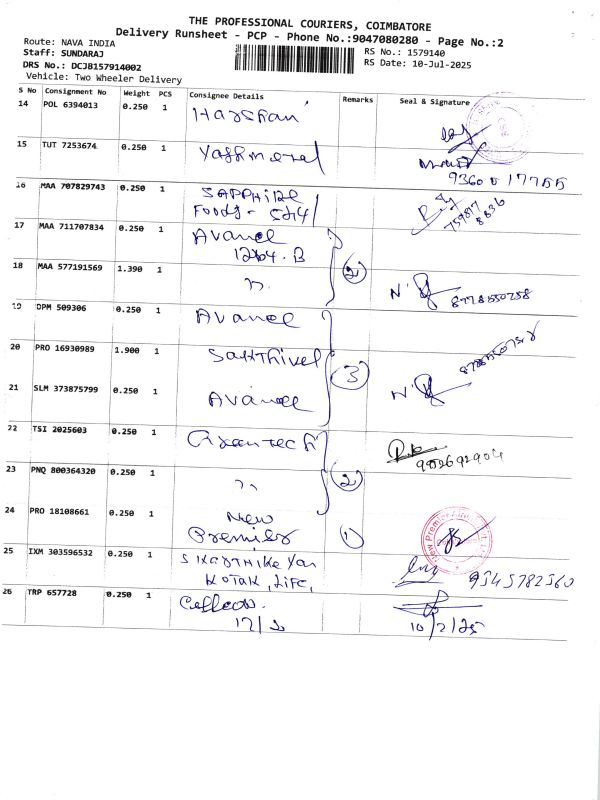 THE PROFESSIONAL COURIERS, COIMBATORE
Delivery Runsheet - PCP - Phone No.:9047080280 - Page No.:2
Route: NAVA INDIA
RS No.: 1579140
Staff: SUNDARAJ
RS Date: 10-Jul-2025
DRS No.: DCJB157914002
Vehicle: Two Wheeler Delivery
S No Consignment No Weight PCS Consignee Details Remarks Seal & Signature
14 POL 6394013 0.250 1 Harshan
15 TUT 7253674 0.250 1
16 MAA 707829743 0.250 1 SAPPHIRE
Foods -
759817
8836
17 MAA 711707834 0.250 1 Avanee
1264. B
2
18 MAA 577191569 1.390 1 "
N.
8778550758
19 DPM 509306 0.250 1 Avanee
20 PRO 16930989 1.900 1 Sakthivel
3
21 SLM 373875799 0.250 1 Avanee
N.
22 TSI 2025603 0.250 1
23 PNQ 800364320 0.250 1 "
2
24 PRO 18108661 0.250 1 New
Premier
1
25 IXM 303596532 0.250 1 S Karthikeyan
KOTAK, LIFE,
9545782560
26 TRP 657728 0.250 1